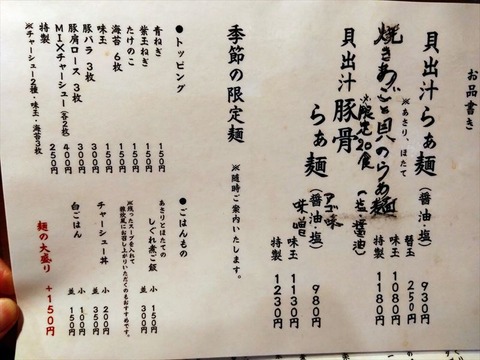 お品書き
貝出汁らぁ麺(醤油・塩)930円
※あさり、ほたて
替玉 250円
味玉 1080円
特製 1180円
焼きあごと貝のらぁ麺
※限定20食(塩・醤油)
貝出汁豚骨らぁ麺(醤油・塩)980円
味噌
味玉 1130円
特製 1230円
季節の限定麺 ※随時ご案内いたします。
●トッピング
青ねぎ 150円
紫玉ねぎ 150円
たけのこ 150円
海苔 6枚 150円
味玉 150円
豚バラ 3枚 300円
豚肩ロース 3枚 300円
MIXチャーシュー(各2枚) 400円
特製 250円
※チャーシュー2種・味玉・海苔3枚
●ごはんもの
あさりとほたての
しぐれ煮ご飯 小 150円
並 300円
※残ったスープを入れて
雑炊風にお召し上がりいただくのもおすすめです。
チャーシュー丼 小 200円
並 350円
白ごはん 小 100円
並 150円
麺の大盛り +150円